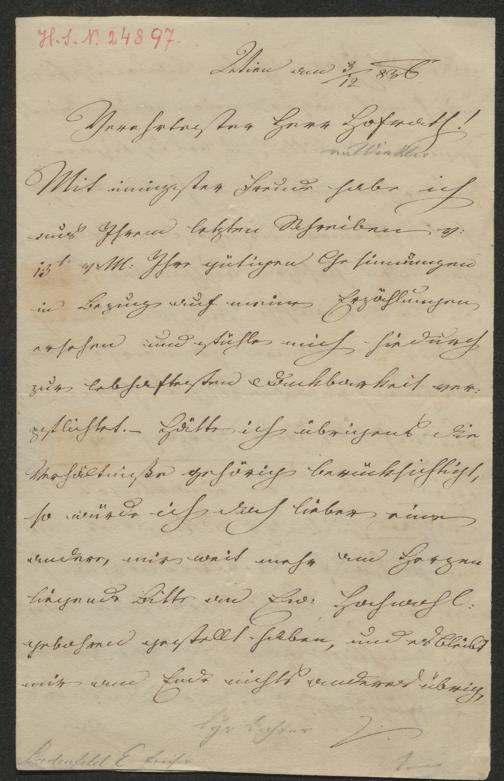 H.I.N. 24897.
Wien am 3/12 836
Verehrtester Herr Hofrath!
an Winkler
Mit innigster Freude habe ich
aus Ihrem letzten Schreiben v:
13t v. M: Ihre gütigen Gesinnungen
in Bezug auf meine Erzählungen
ersehen und fühle mich hiedurch
zur lebhaftesten Dankbarkeit ver-
pflichtet.– Hätte ich übrigens die
Verhältniße gehörig berücksichtigt,
so würde ich doch lieber eine
andere, mir weit mehr am Herzen
liegende Bitte an Eu: Hochwohl:
gebohren gestellt haben, und es bleibt
mir am Ende nichts anderes übrig,